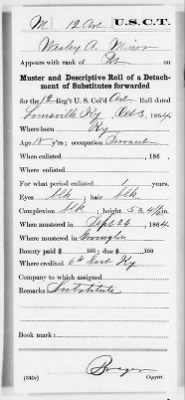 M 12 Art U.S.C.T.
Wesley A. Minor
Appears with rank of Pvt on
Muster and Descriptive Roll of a Detach-
ment of Substitutes forwarded
for the 12 Reg't U. S. Col'd Art. Roll dated
Louisville Ky Oct 3, 1864.
Where born Ky
Age 18 y'rs; occupation Servant
When enlisted , 186 .
Where enlisted
For what period enlisted 1 years.
Eyes blk ; hair blk
Complexion blk ; height 5 ft. 4½ in.
When mustered in Sept 26, 1864.
Where mustered in Covington
Bounty paid $ 100; due $ 100
Where credited 6th Dist Ky
Company to which assigned
Remarks: Substitute
Book mark:
(340c) Copyist.